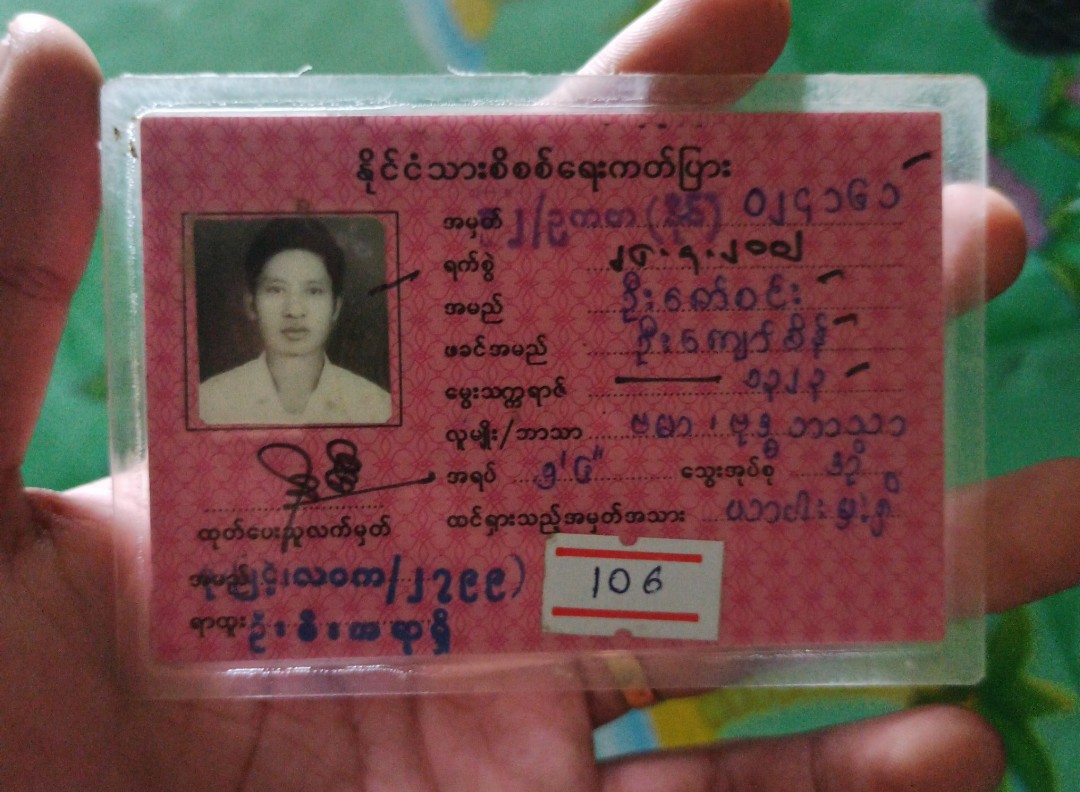 နိုင်ငံသားစိစစ်ရေးကတ်ပြား
အမှတ် (နိုင်) ၀၂၄၁၆၁
ရက်စွဲ
အမည် ဦးဇော်ဝင်း
ဖခင်အမည် ဦးကျော်စိန်
မွေးသက္ကရာဇ် ၁၃၂၃
လူမျိုး/ဘာသာ ဗမာ ၊ ဗုဒ္ဓဘာသာ
အရပ် ၅'၆" သွေးအုပ်စု
ထင်ရှားသည့်အမှတ်အသား
ထုတ်ပေးသူလက်မှတ်
အမည် လဝက/၂၇၉၉)
ရာထူး ဦးစီးအရာရှိ
106